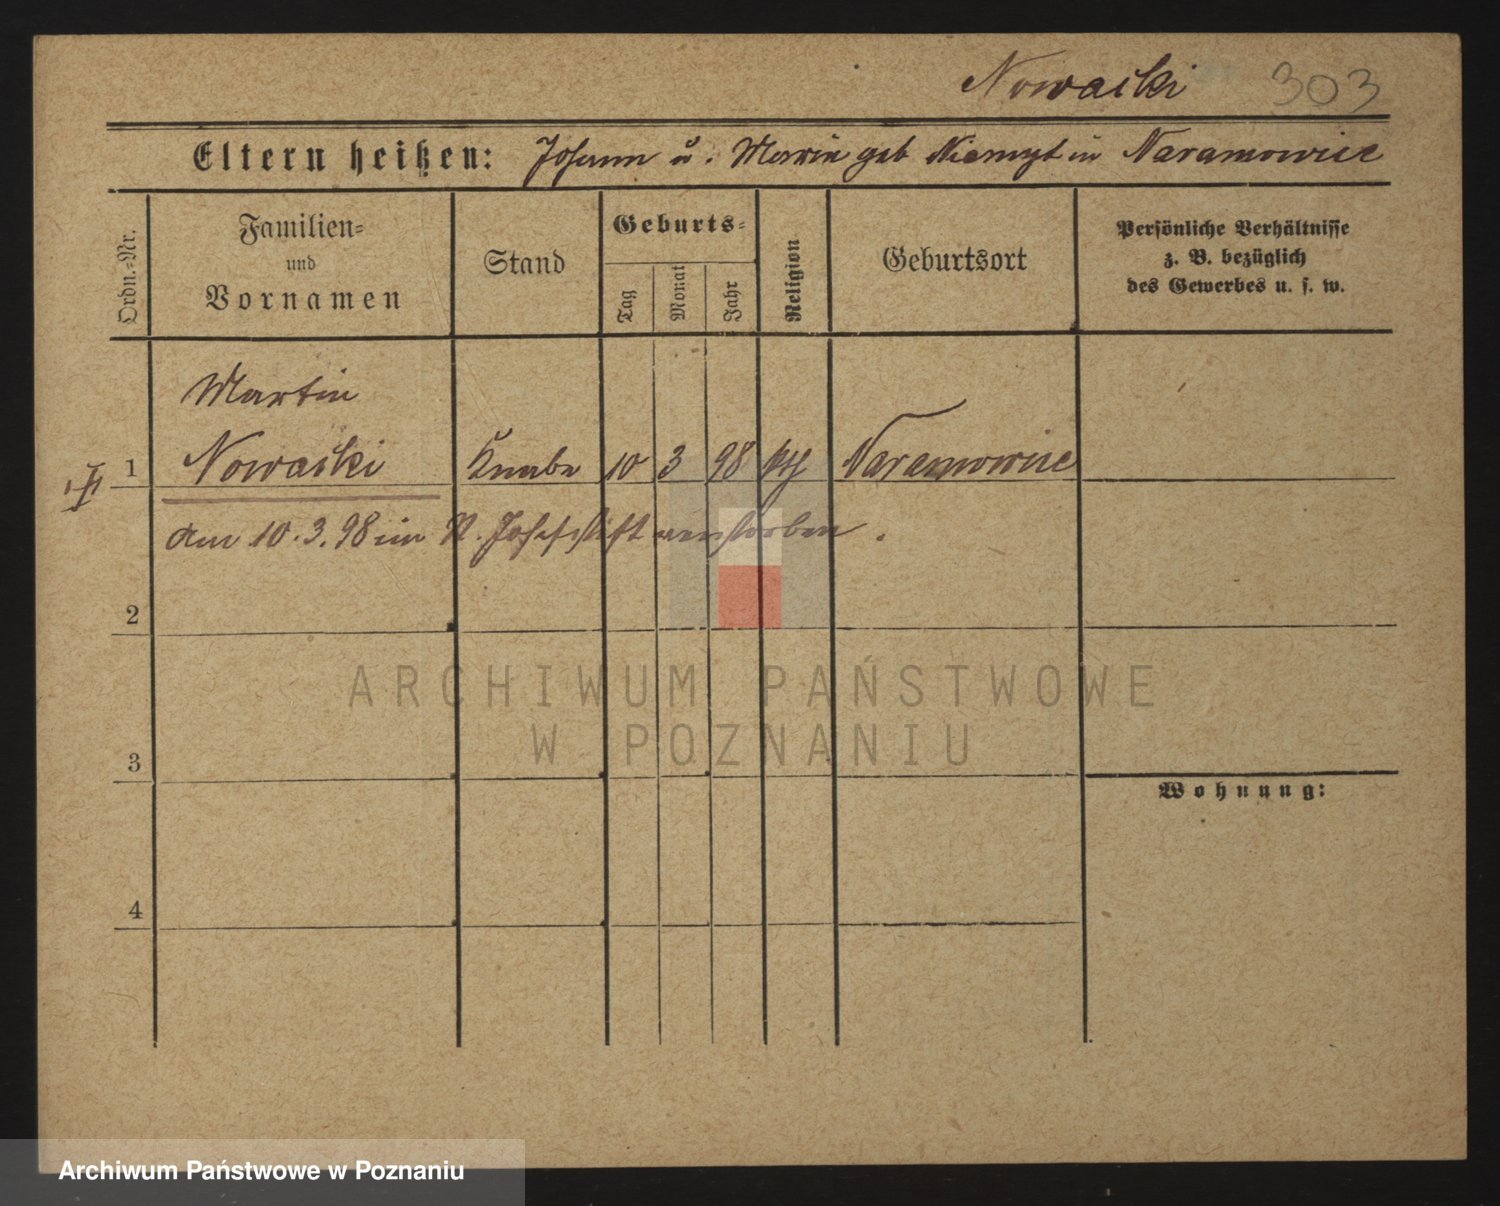 Nowacki 303
Eltern heißen: Johann u. Marie geb Niemyt in Naramowice
Ordn.-Nr.
Familien-
und
Vornamen
Stand
Geburts-
Tag
Monat
Jahr
Religion
Geburtsort
Persönliche Verhältnisse
z. B. bezüglich
des Gewerbes u. s. w.
Martin
1 Nowacki Knabe 10 3 98 kth Naramowice
am 10.3.98 im St. Josefstift verstorben.
2
3
Wohnung:
4
ARCHIWUM PAŃSTWOWE
W POZNANIU
Archiwum Państwowe w Poznaniu